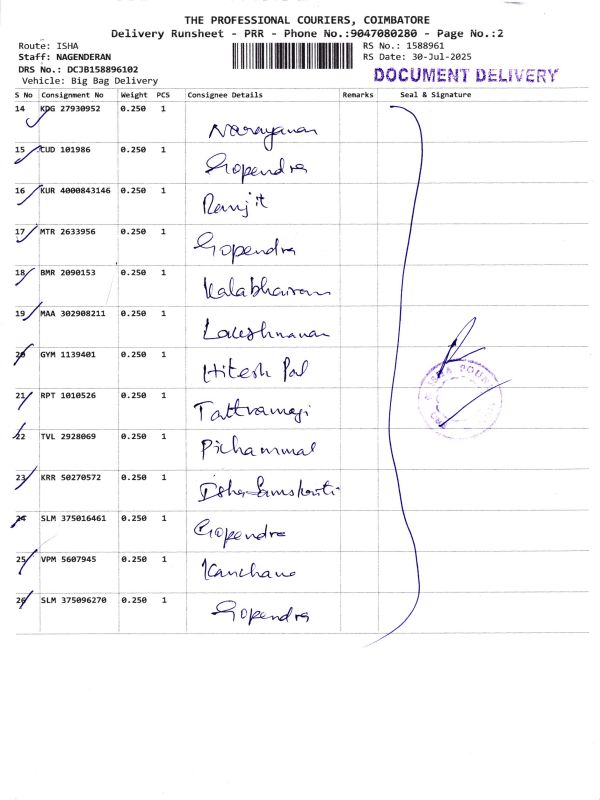 THE PROFESSIONAL COURIERS, COIMBATORE
Delivery Runsheet - PRR - Phone No.:9047080280 - Page No.:2
Route: ISHA
RS No.: 1588961
Staff: NAGENDERAN
RS Date: 30-Jul-2025
DRS No.: DCJB158896102
DOCUMENT DELIVERY
Vehicle: Big Bag Delivery
S No Consignment No Weight PCS Consignee Details Remarks Seal & Signature
14 KDG 27930952 0.250 1 Narayanan
15 CUD 101986 0.250 1 Gopendra
16 KUR 4000843146 0.250 1 Ramjit
17 MTR 2633956 0.250 1 Gopendra
18 BMR 2090153 0.250 1 Kalabhairam
19 MAA 302908211 0.250 1 Lakshmanan
20 GYM 1139401 0.250 1 Hitesh Pal
21 RPT 1010526 0.250 1 Tattvamayi
22 TVL 2928069 0.250 1 Pichammal
23 KRR 50270572 0.250 1 Isha Samskriti
24 SLM 375016461 0.250 1 Gopendra
25 VPM 5607945 0.250 1 Kanchana
26 SLM 375096270 0.250 1 Gopendra